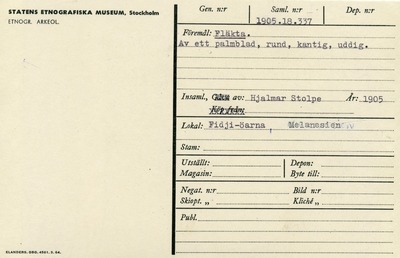 STATENS ETNOGRAFISKA MUSEUM, Stockholm
ETNOGR. ARKEOL.
Gen. n:r Saml. n:r Dep. n:r
1905.18.337
Föremål: Fläkta.
Av ett palmblad, rund, kantig, uddig.
Insaml., Gåva av: Hjalmar Stolpe År: 1905
Köp från:
Lokal: Fidji-öarna, Melanesien
Stam:
Utställt: Depon:
Magasin: Byte till:
Negat. n:r Bild n:r
Skiopt. „ Kliché „
Publ.